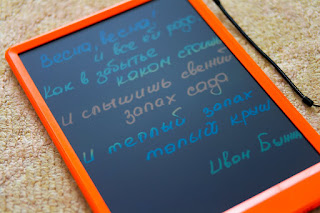 Весна, весна!
и все ей радо
Как в забытье
каком стоишь
И слышишь свежий
запах сада
И теплый запах
талых крыш
Иван